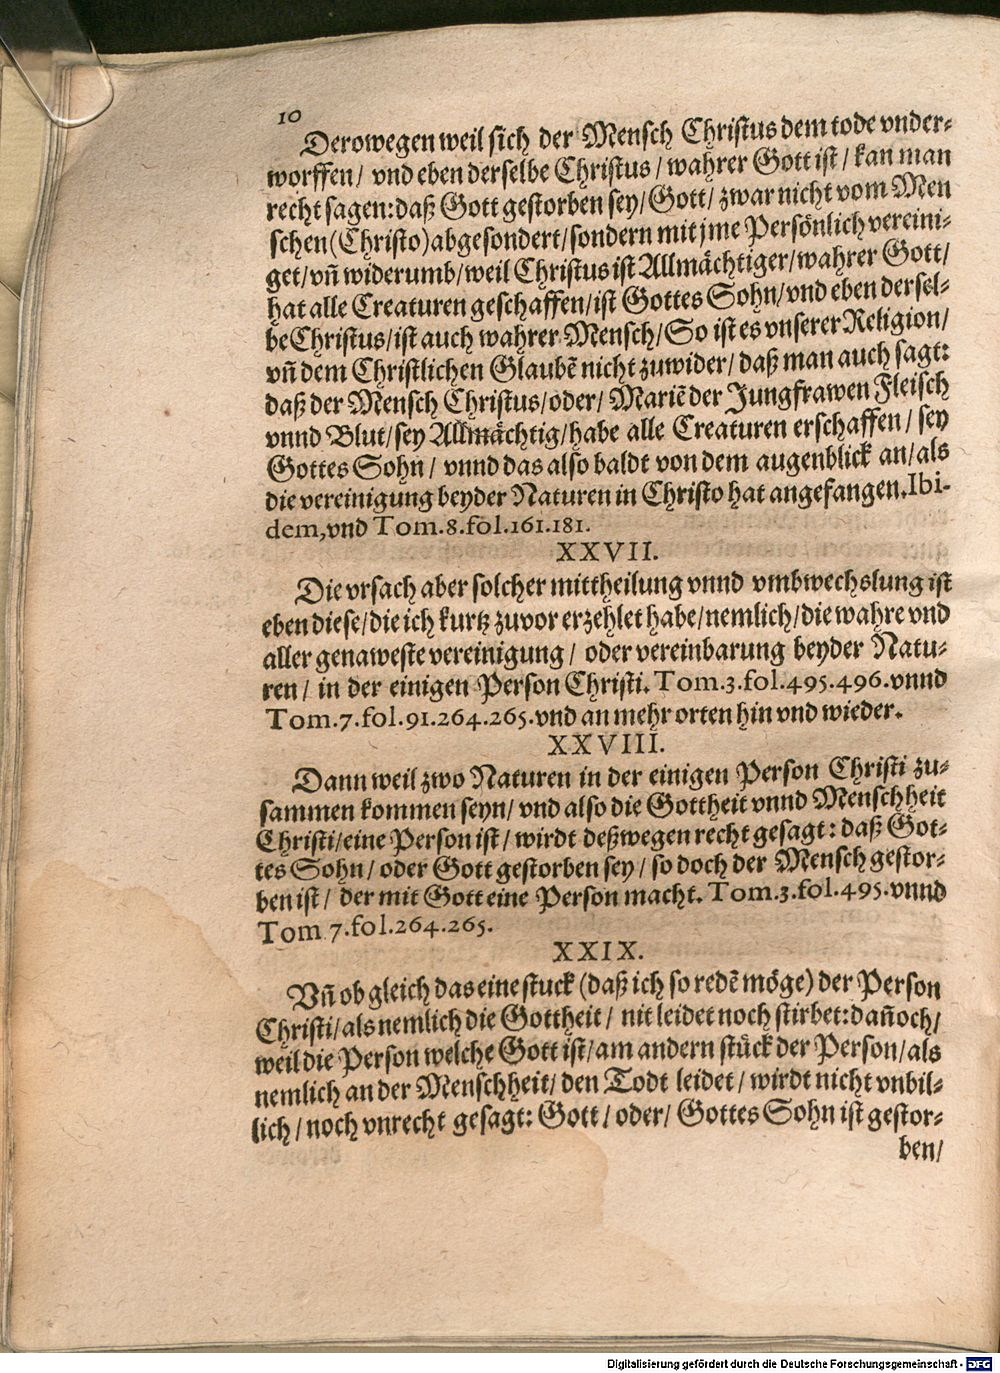 10
Derowegen weil sich der Mensch Christus dem tode vnder-
worffen/ vnd eben derselbe Christus/ wahrer Gott ist/ kan man
recht sagen: daß Gott gestorben sey/ Gott/ zwar nicht vom Men
schen (Christo) abgesondert/ sondern mit jme Persönlich vereini-
get/ vñ widerumb/ weil Christus ist Allmächtiger/ wahrer Gott/
hat alle Creaturen geschaffen/ ist Gottes Sohn/ vnd eben dersel-
be Christus/ ist auch wahrer Mensch/ So ist es vnserer Religion/
vñ dem Christlichen Glaubẽ nicht zuwider/ daß man auch sagt:
daß der Mensch Christus/ oder/ Mariẽ der Jungfrawen Fleisch
vnnd Blut/ sey Allmächtig/ habe alle Creaturen erschaffen/ sey
Gottes Sohn/ vnnd das also baldt von dem augenblick an/ als
die vereinigung beyder Naturen in Christo hat angefangen. Ibi-
dem, vnd Tom. 8. fol. 161. 181.
XXVII.
Die vrsach aber solcher mittheilung vnnd vmbwechslung ist
eben diese/ die ich kurtz zuvor erzehlet habe/ nemlich/ die wahre vnd
aller genaweste vereinigung/ oder vereinbarung beyder Natu-
ren/ in der einigen Person Christi. Tom. 3. fol. 495. 496. vnnd
Tom. 7. fol. 91. 264. 265. vnd an mehr orten hin vnd wieder.
XXVIII.
Dann weil zwo Naturen in der einigen Person Christi zu-
sammen kommen seyn/ vnd also die Gottheit vnnd Menschheit
Christi/ eine Person ist/ wirdt deßwegen recht gesagt: daß Got-
tes Sohn/ oder Gott gestorben sey/ so doch der Mensch gestor-
ben ist/ der mit Gott eine Person macht. Tom. 3. fol. 495. vnnd
Tom 7. fol. 264. 265.
XXIX.
Vñ ob gleich das eine stuck (daß ich so redẽ möge) der Person
Christi/ als nemlich die Gottheit/ nit leidet noch stirbet: dañoch/
weil die Person welche Gott ist/ am andern stück der Person/ als
nemlich an der Menschheit/ den Todt leidet/ wirdt nicht vnbil-
lich/ noch vnrecht gesagt: Gott/ oder/ Gottes Sohn ist gestor-
ben/
Digitalisierung gefördert durch die Deutsche Forschungsgemeinschaft - DFG